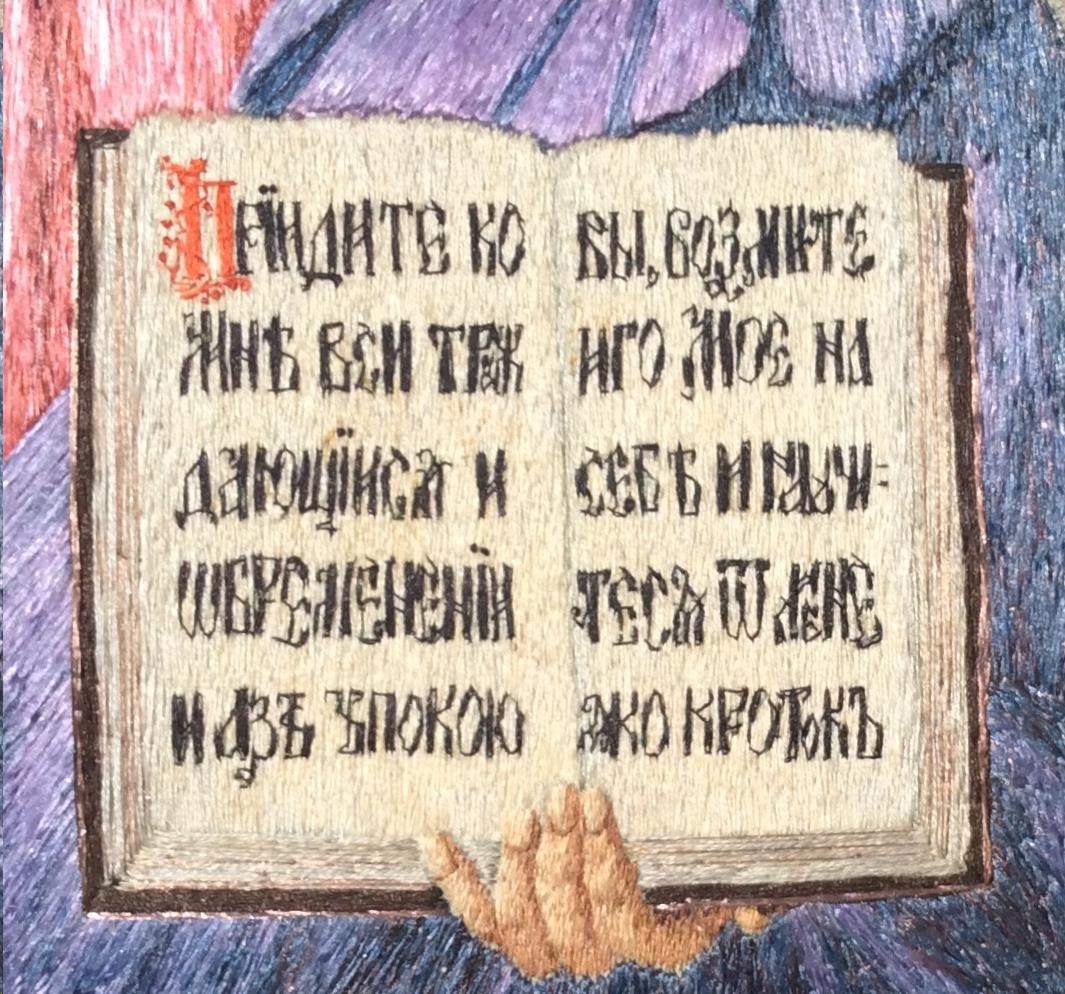 Прїидите ко
Мнѣ вси трꙋж
дающїися и
ѡбремененїи
и азъ ᲂупокою
вы, возмите
иго Мое на
себѣ и наꙋчи-
тесѧ ѿ мене
ꙗко кротокъ